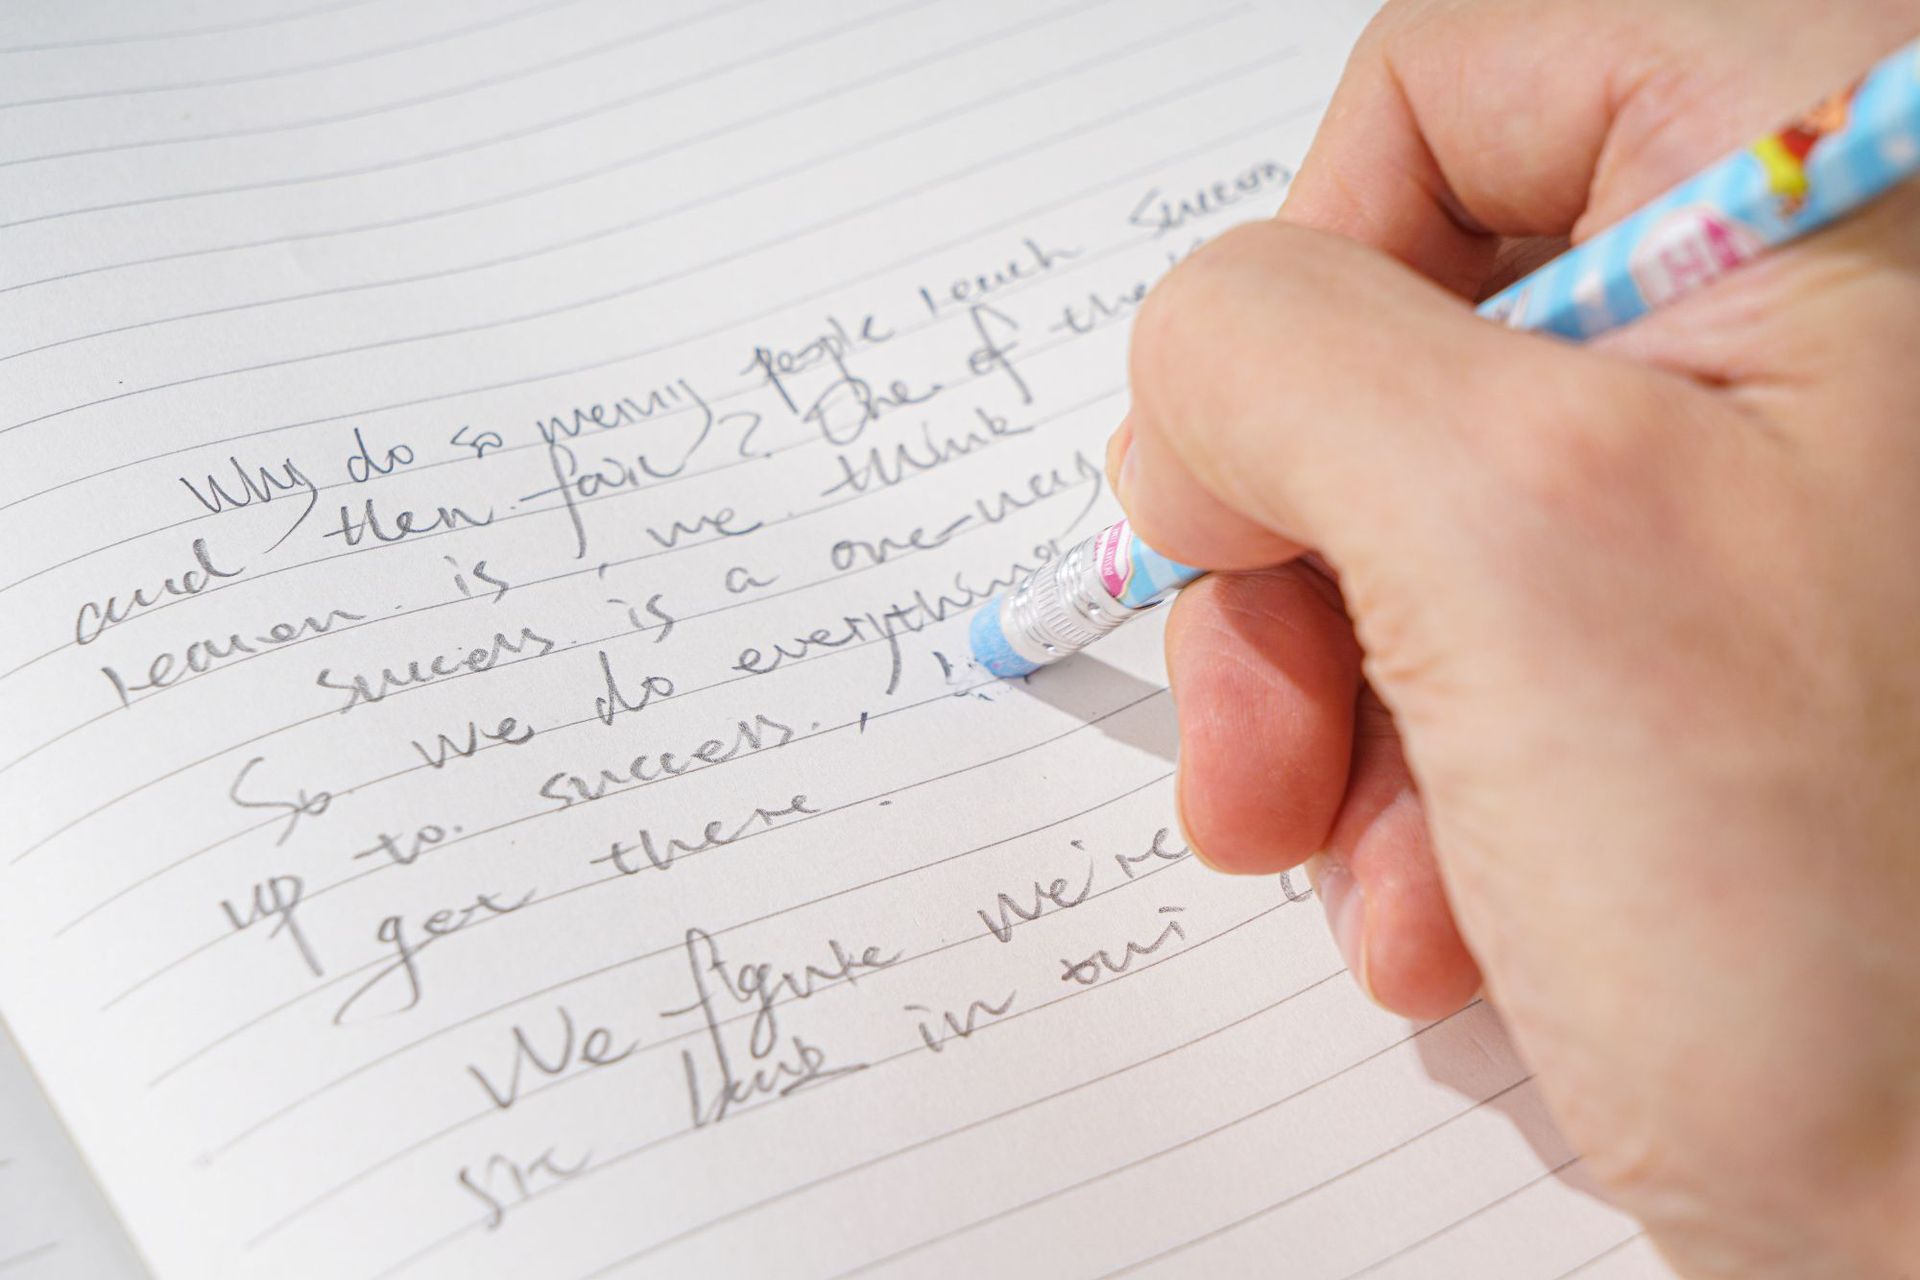 Why do so many people reach success
and then fail? One of the
reason is, we think
success is a one-way
So we do everything
up to success.,
get there.
We figure we're
sit back in our